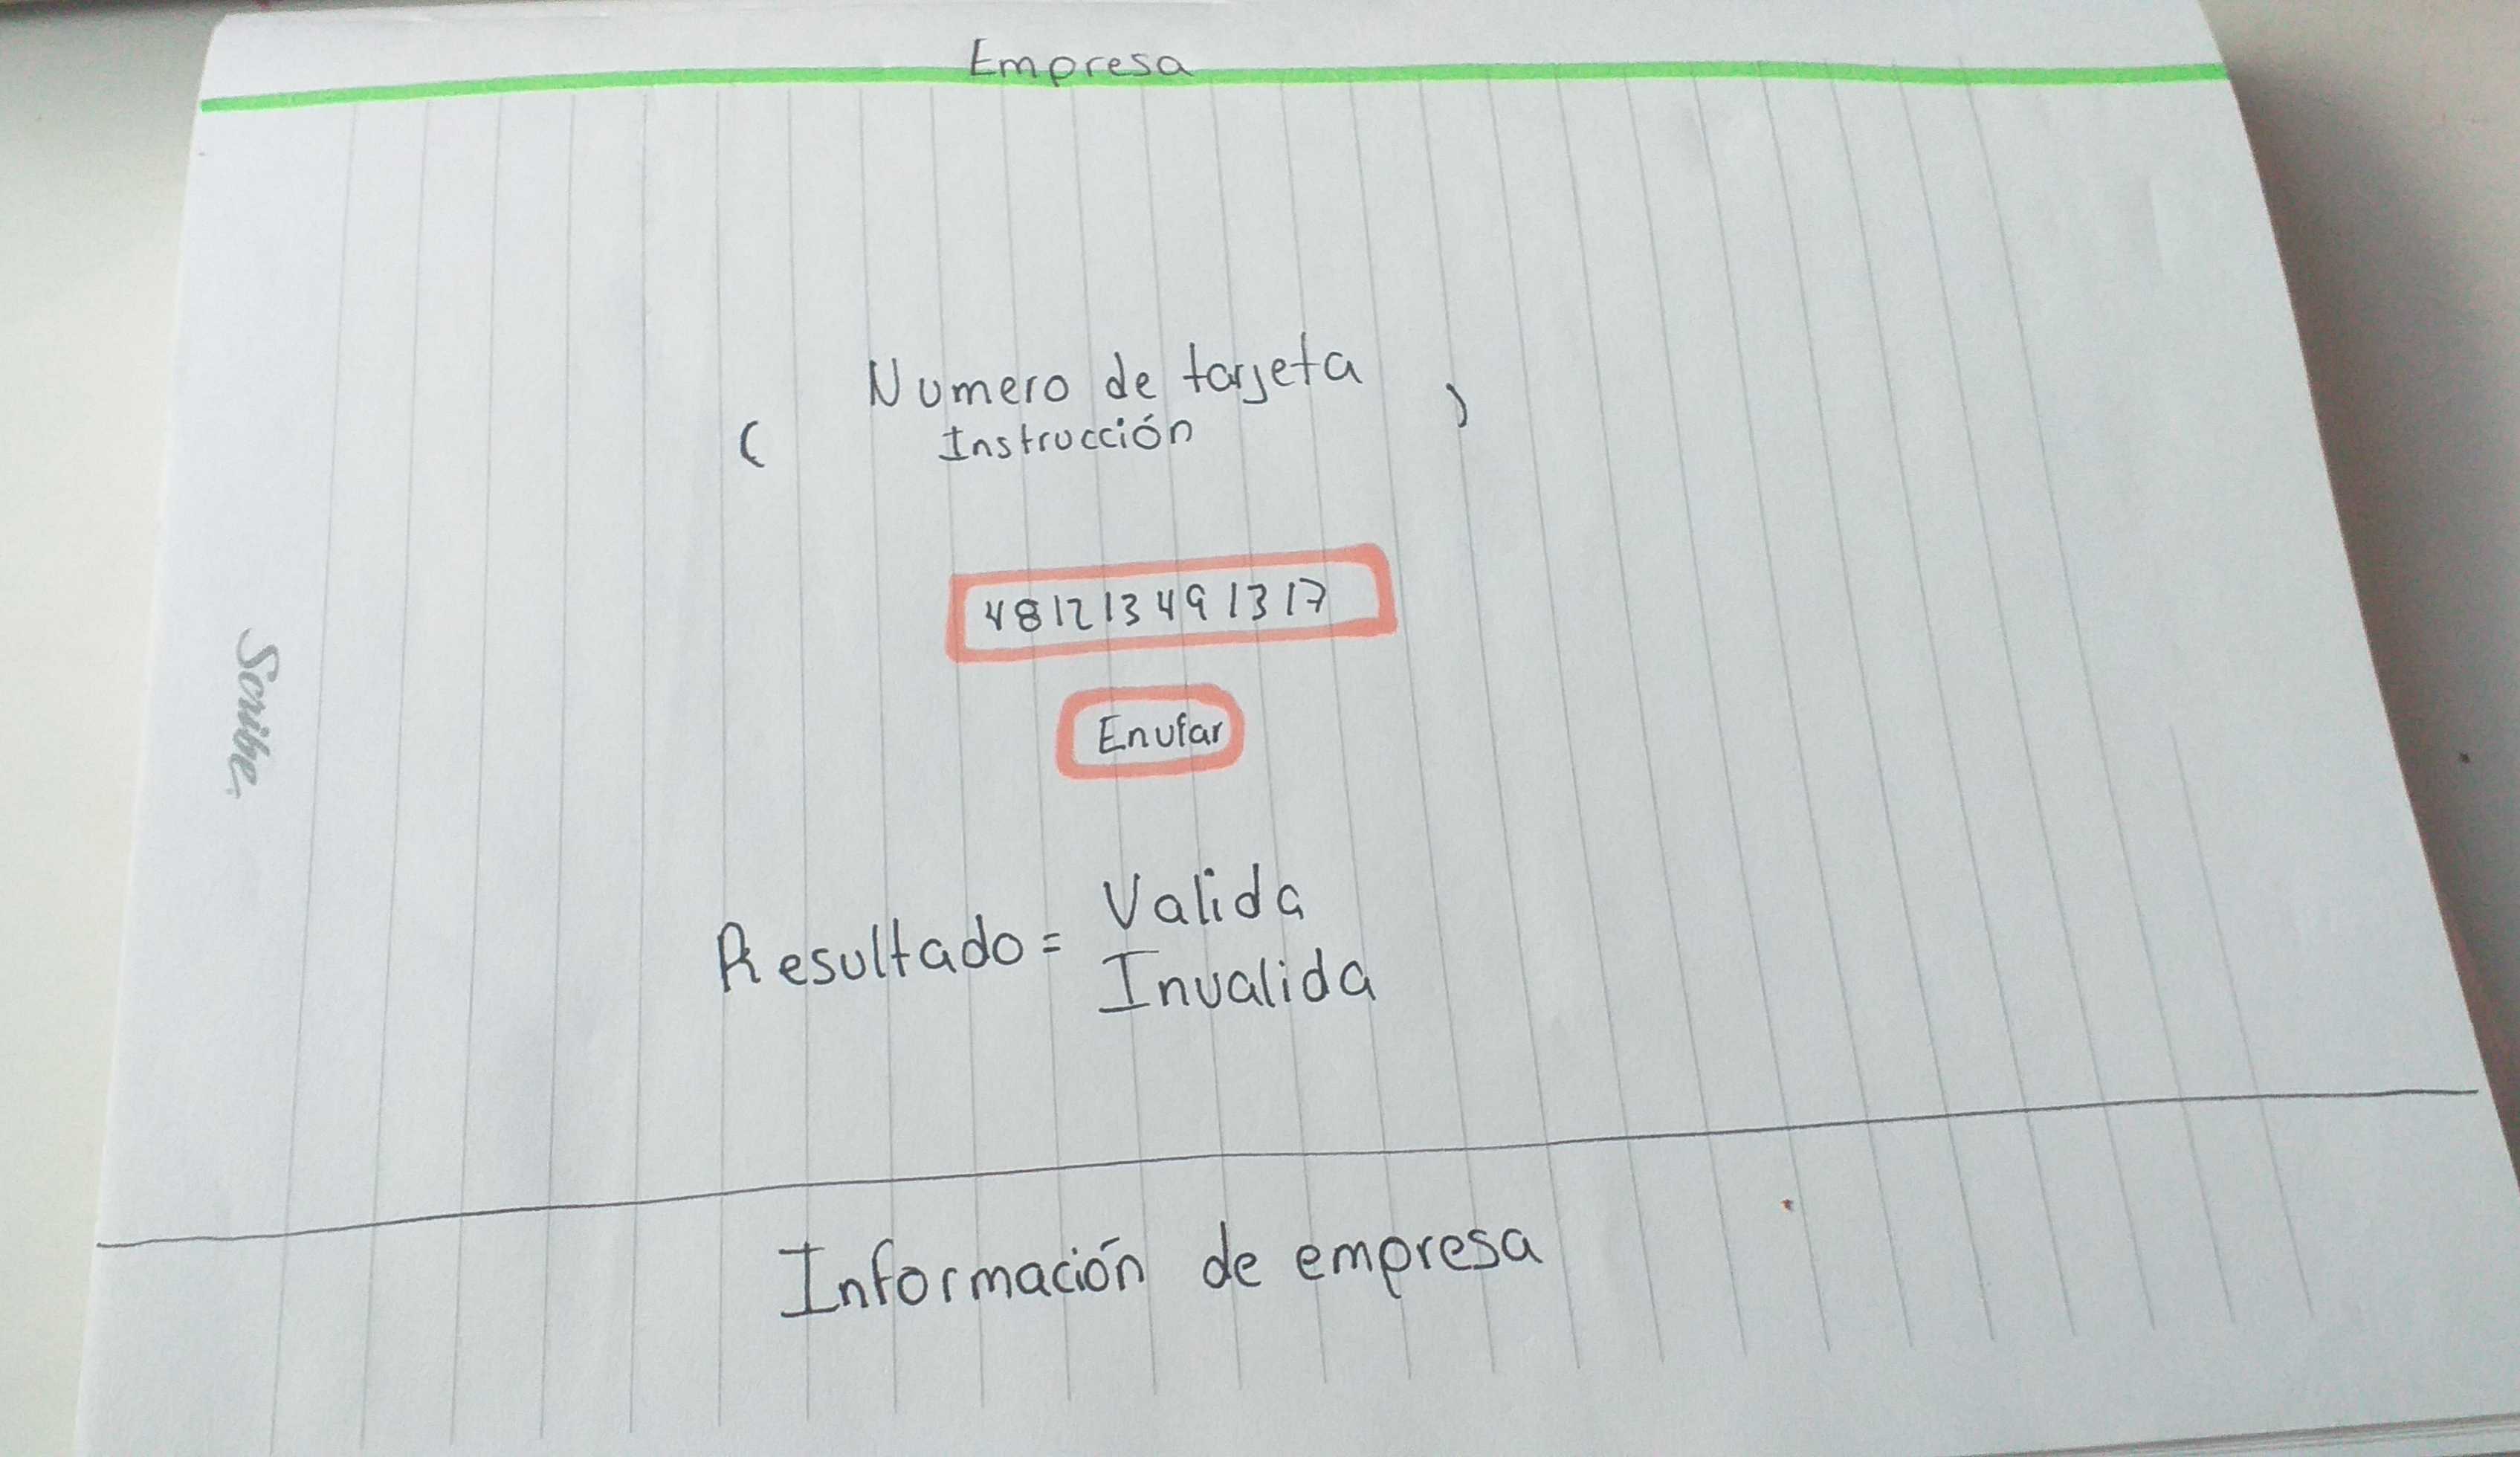 Empresa
Numero de tarjeta
( Instrucción )
481213491317
Enviar
Resultado = Valida
Invalida
Información de empresa
Scribe